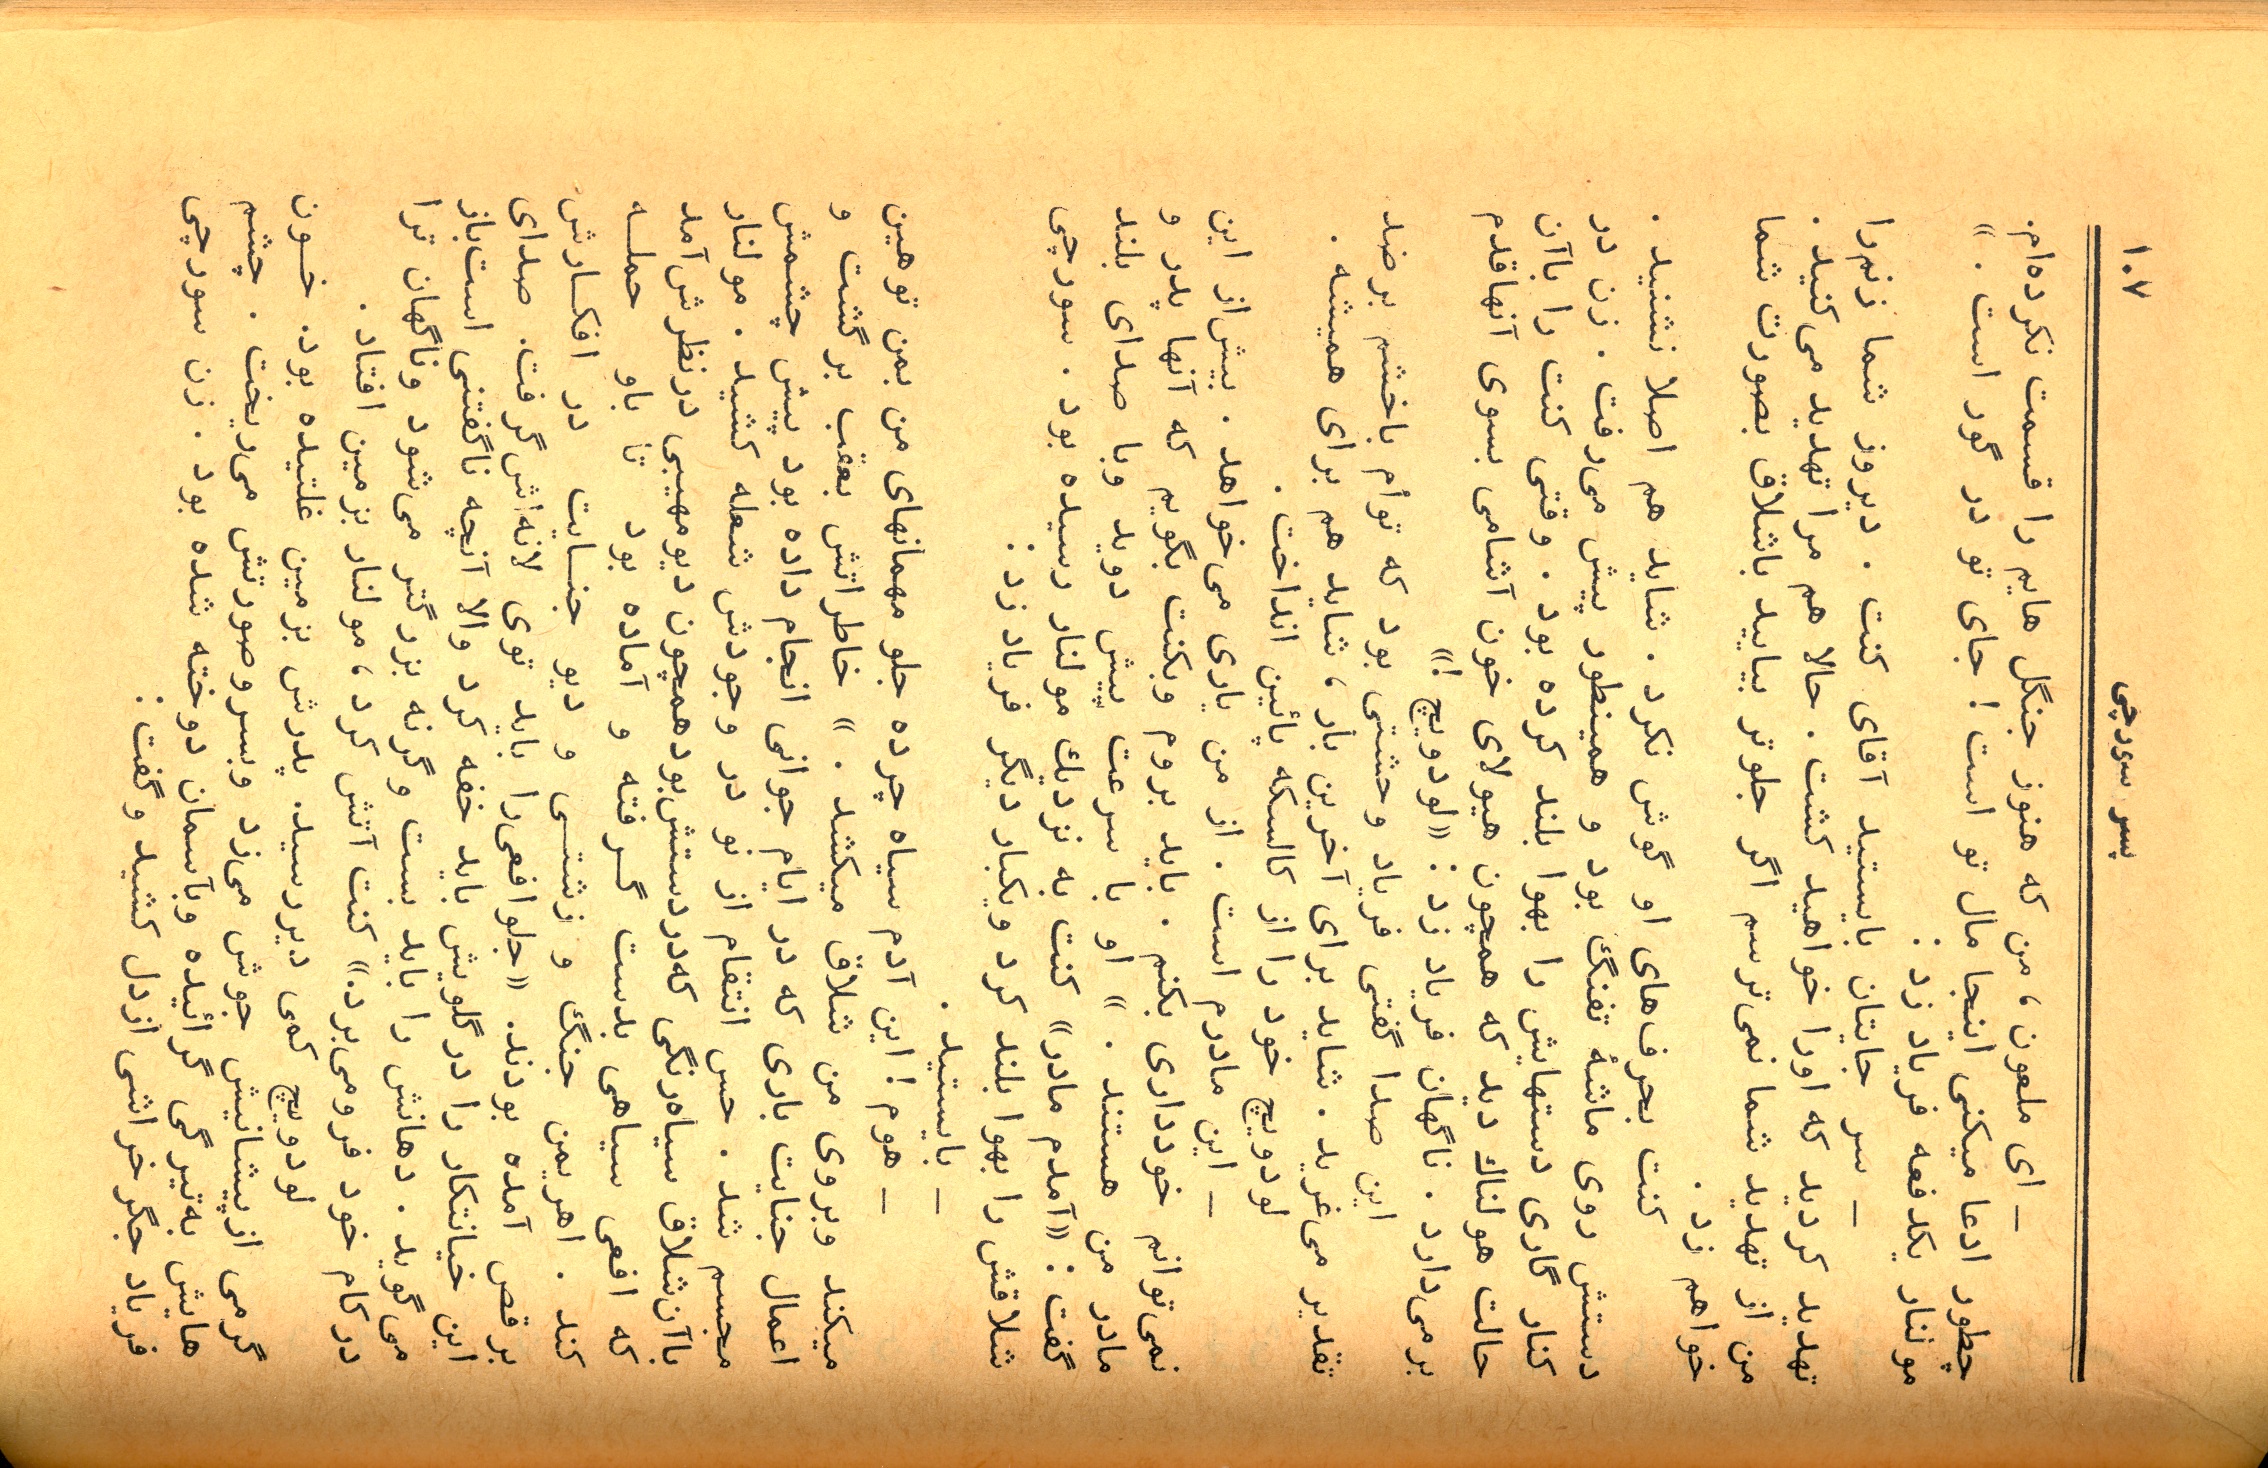 پسر سورچی
۱۰۷
— ای ملعون، من که هنوز جنگل هایم را قسمت نکرده‌ام.
چطور ادعا میکنی اینجا مال تو است! جای تو در گور است . »
مولنار یکدفعه فریاد زد :
— سر جایتان بایستید آقای کنت . دیروز شما زنم‌را
تهدید کردید که اورا خواهید کشت. حالا هم مرا تهدید می‌کنید .
من از تهدید شما نمی‌ترسم اگر جلوتر بیایید باشلاق بصورت شما
خواهم زد .
کنت بحرف‌های او گوش نکرد . شاید هم اصلا نشنید .
دستش روی ماشهٔ تفنگ بود و همینطور پیش می‌رفت . زن در
کنار گاری دستهایش را بهوا بلند کرده بود . وقتی کنت را باآن
حالت هولناك دید که همچون هیولای خون آشامی بسوی آنهاقدم
برمی‌دارد . ناگهان فریاد زد : «لودویچ !»
این صدا گفتی فریاد وحشتی بود که توأم باخشم برضد
تقدیر می‌غرید . شاید برای آخرین بار، شاید هم برای همیشه .
لودویچ خود را از کالسکه پائین انداخت .
— این مادرم است . از من یاری می‌خواهد . بیش‌از این
نمی‌توانم خودداری بکنم . باید بروم وبکنت بگویم که آنها پدر و
مادر من هستند . » او با سرعت پیش دوید وبا صدای بلند
گفت : «آمدم مادر» کنت به نزدیك مولنار رسیده بود . سورچی
شلاقش را بهوا بلند کرد ویکبار دیگر فریاد زد :
— بایستید .
— هوم ! این آدم سیاه چرده جلو مهمانهای من بمن توهین
میکند وبروی من شلاق میکشد . » خاطراتش بعقب برگشت و
اعمال جنایت باری که در ایام جوانی انجام داده بود پیش چشمش
مجسم شد . حس انتقام از نو در وجودش شعله کشید . مولنار
باآن‌شلاق سیاه‌رنگی که‌دردستش‌بودهمچون دیومهیبی درنظرش‌آمد
که افعی سیاهی بدست گـرفته و آماده بود تا باو حملـه
کند . اهریمن جنگ و زشتـی و دیو جنـایت در افکـارش
برقص آمده بودند. «جلوافعی‌را باید توی لانه‌اش‌گرفت. صدای
این خیانتکار را درگلویش باید خفه کرد والا آنچه ناگفتنی است‌باز
می‌گوید . دهانش را باید بست وگرنه بزرگتر می‌شود وناگهان ترا
درکام خود فرومی‌برد.» کنت آتش کرد، مولنار بزمین افتاد .
لودویچ کمی دیررسید. پدرش بزمین غلتیده بود. خـون
گرمی ازپیشانیش جوش می‌زد وبسروصورتش می‌ریخت . چشم
هایش به‌تیرگی گرائیده وبآسمان دوخته شده بود . زن سورچی
فریاد جگرخراشی ازدل کشید وگفت :